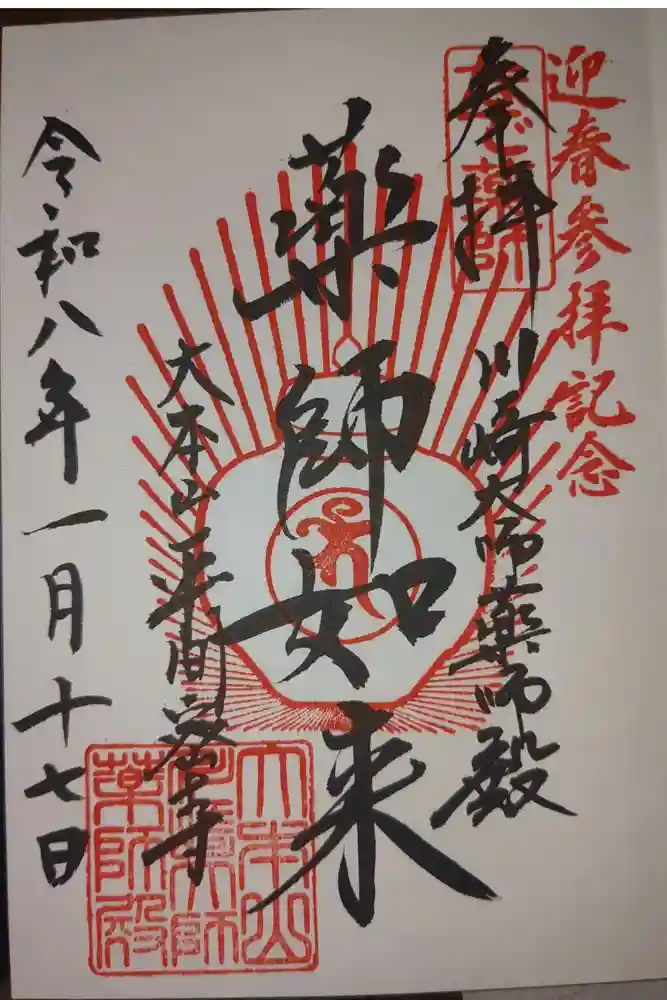 迎春参拝記念
奉拝
なで薬師
川崎大師薬師殿
薬師如来
大本山平間寺
令和八年一月十七日
大本山
薬師殿